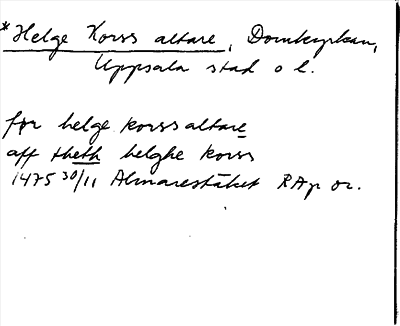 *Helge Korss altare, Domkyrkan,
Uppsala stad o l.
før helge korss altare
aff theth helghe korss
1475 30/11 Almarestäket RAp or.